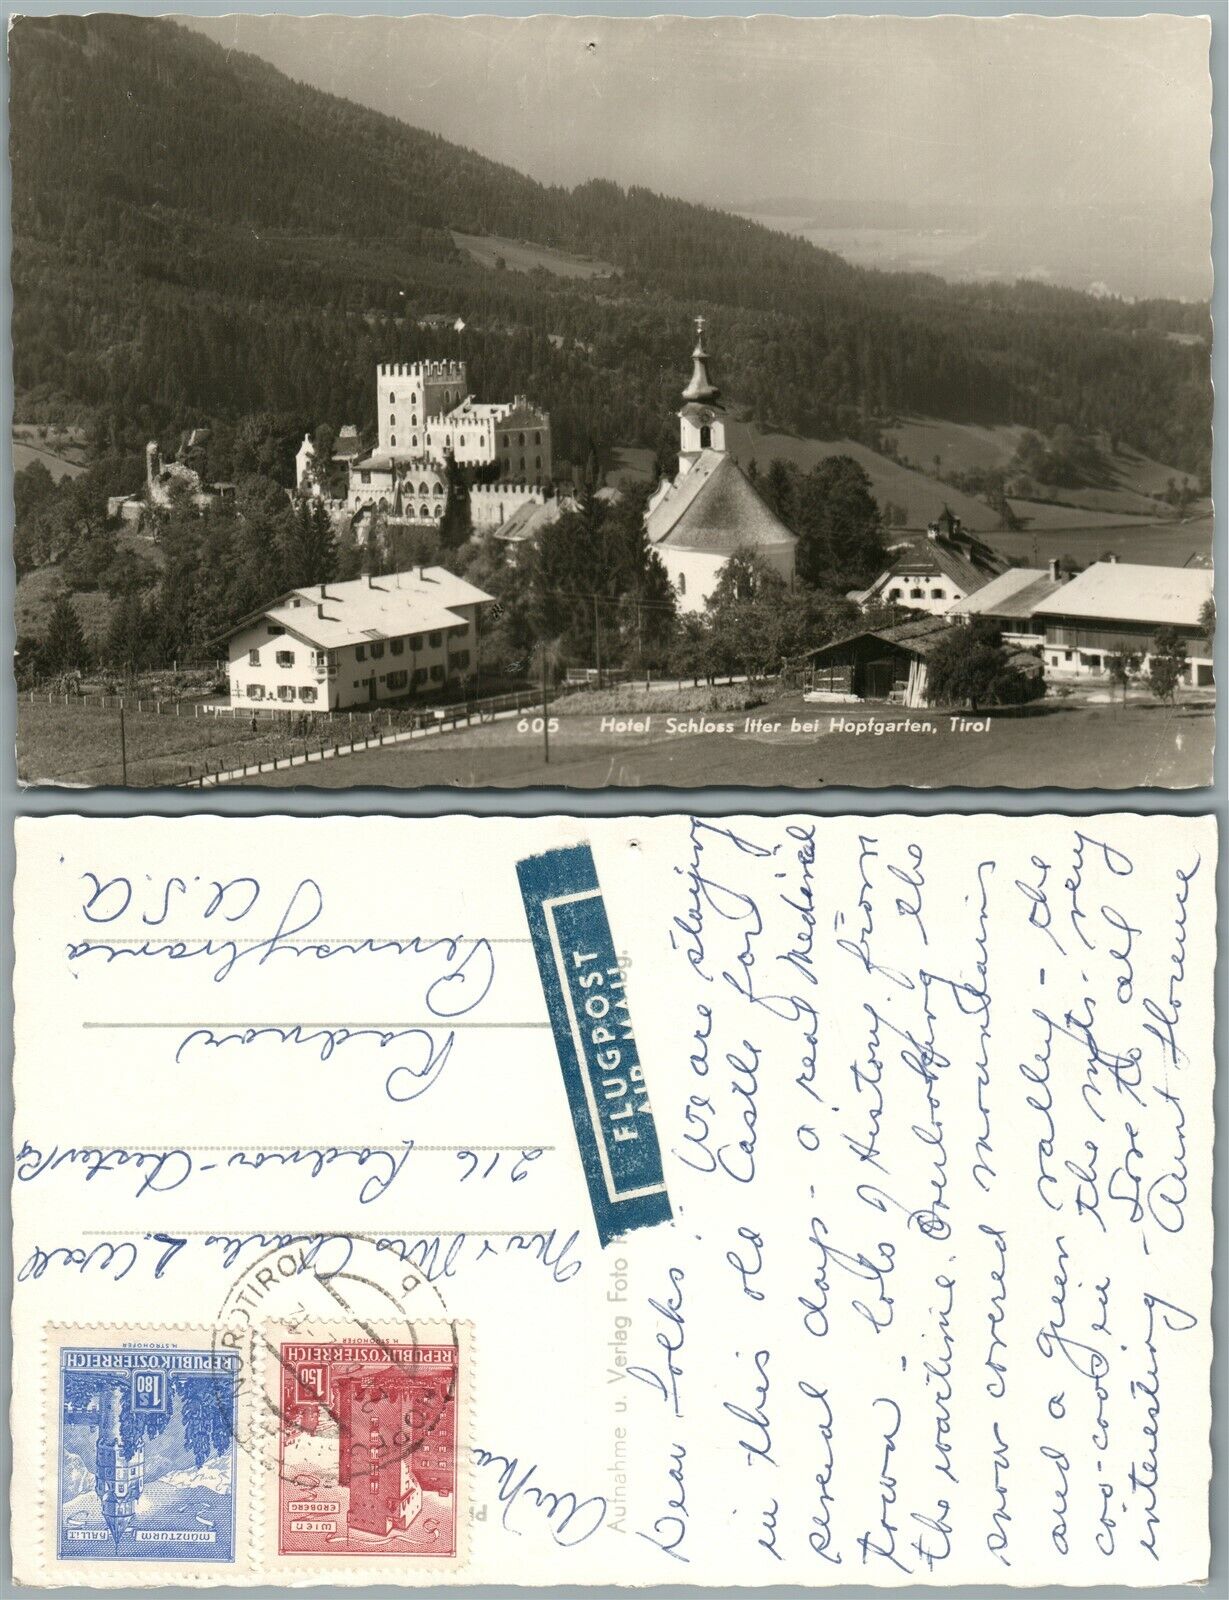 605 Hotel Schloss Itter bei Hopfgarten, Tirol
Dear Folks: We are staying
in this old Castle for
several days - a real Medieval
town - lots of History from
the wartime. Overlooking the
snow covered mountains
and a green valley - the
coo-coos in the mts. very
interesting - Love to all
Aunt Florence
Aufnahme u. Verlag Foto
bg.
FLUGPOST
AIR MAIL
Mr & Mrs Charles L. Wall
216 Radnor-Chester Rd
Radnor
Pennsylvania
U.S.A.
REPUBLIK ÖSTERREICH
H. STROHOFER
1.50
WIEN
ERDBERG
REPUBLIK ÖSTERREICH
H. STROHOFER
S 1.80
MÜNZTURM
HALL i.T.